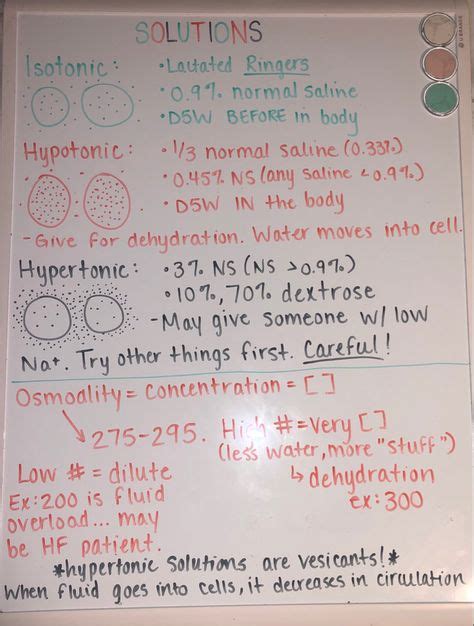 SOLUTIONS
Isotonic: • Lactated Ringers
• 0.9% normal saline
• D5W BEFORE in body
Hypotonic: • 1/3 normal saline (0.33%)
• 0.45% NS (any saline < 0.9%)
• D5W IN the body
- Give for dehydration. Water moves into cell.
Hypertonic: • 3% NS (NS > 0.9%)
• 10%, 70% dextrose
- May give someone w/ low
Na+. Try other things first. Careful!
Osmoality = Concentration = [ ]
275-295.
High # = very [ ]
(less water, more "stuff")
dehydration
ex: 300
Low # = dilute
Ex: 200 is fluid
overload... may
be HF patient.
*hypertonic solutions are vesicants!*
When fluid goes into cells, it decreases in circulation